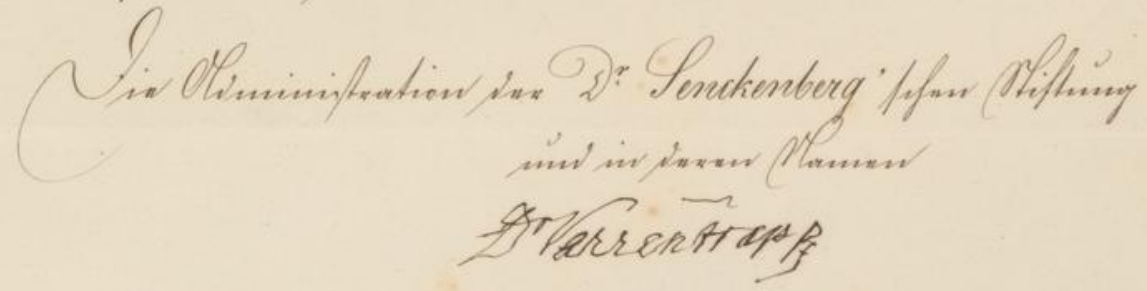 Die Administration der Dr. Senckenberg'schen Stiftung
und in deren Namen
Dr Varrentrapp